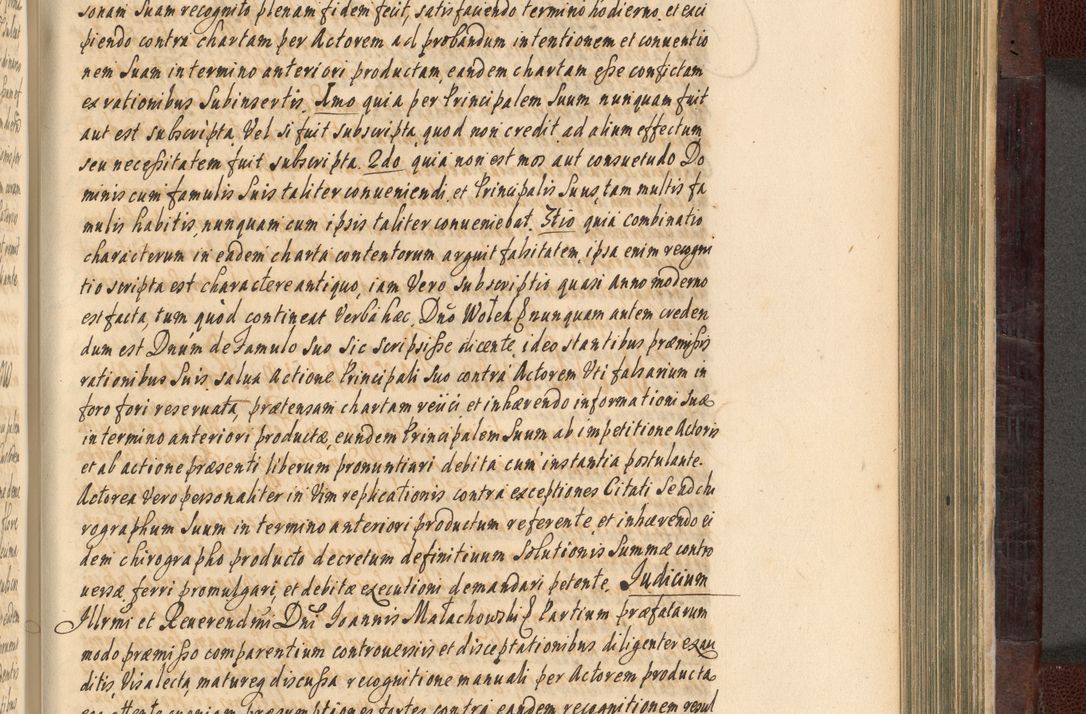 sonam Suam recognito plenam fidem fecit, satisfaciendo termino hodierno, et exci
piendo contra chartam per Actorem ad probandum intentionem et conventio
nem Suam in termino anteriori productam, eandem chartam esse confictam
ex rationibus Subinsertis, 1mo quia per Principalem Suum nunquam fuit
aut est subscripta, Vel si fuit subscripta, quod non credit, ad alium effectum
seu necessitatem fuit subscripta. 2do quia non est mos aut consuetudo Do
minis cum famulis Suis taliter conveniendi, et Principalis Suus, tam multis fa
mulis habitis, nunquam cum ipsis taliter conveniebat. 3tio quia combinatio
characterum in eadem charta contentorum arguit falsitatem, ipsa enim recogni
tio scripta est charactere antiquo, iam Vero subscriptis quasi Anno moderno
est facta, tum quòd contineat Verba hæc, Dño Wolea nunquam autem creden
dum est Dnum de Famulo suo sic scripsisse dicente, ideo stantibus præmissis
rationibus Suis, salva Actione Principali Suo contra Actorem Uti falsarium in
foro fori reservata, prætensam chartam reiici et inhærendo informationi Suæ
in termino anteriori productæ, eundem Principalem Suum ab impetitione Actoris
et ab actione præsenti liberum pronuntiari debita cum instantia postulante.
Actorea Vero personaliter in Vim replicationis contra exceptiones Citati Se ad chi
rographum Suum in termino anteriori productum referente, et inhærendo ei
dem chirographo producto decretum definitivum Solutionis Summæ contro
versæ, ferri promulgari, et debitæ executioni demandari petente. Judicium
Illrmi et Reverendmi Dni Joannis Małachowski Partium præfatarum
modo præmisso comparentium controversiis et disceptationibus diligenter exau
ditis, Visa lecta, matureq discussa recognitione manuali per Actorem producta
præsumptiones fortes contra eandem recognitionem resul